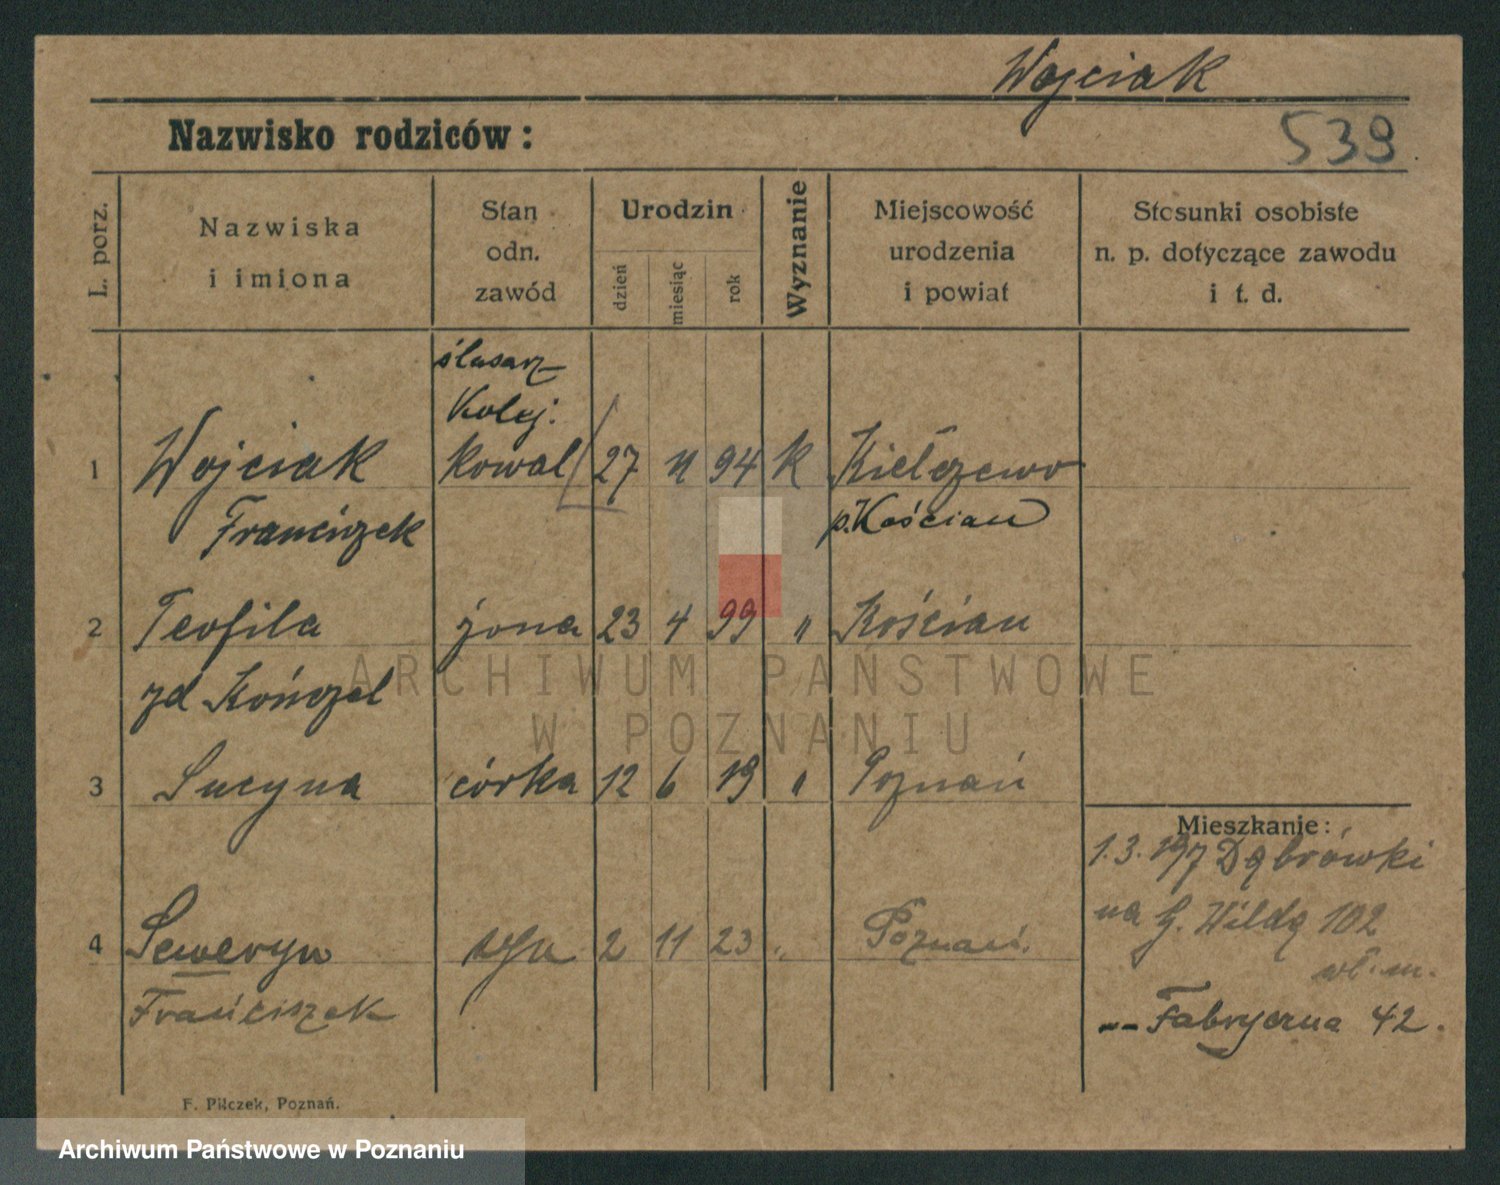 Wojciak
Nazwisko rodziców:
539
L. porz.
Nazwiska
i imiona
Stan
odn.
zawód
Urodzin
dzień
miesiąc
rok
Wyznanie
Miejscowość
urodzenia
i powiat
Stosunki osobiste
n. p. dotyczące zawodu
i t. d.
ślusarz
Kolej.
1 Wojciak kowal 27 94 k Kiełczewo
Franciszek p. Kościan
2 Teofila żona 23 4 99 " Kościan
zd Kończal
3 Lucyna córka 12 6 19 " Poznań
Mieszkanie:
1.3.197 Dąbrówki
na G. Wildą 102
4 Seweryn syn 2 11 23 " Poznań.
wł. m.
Franciszek
-- Fabryczna 42.
F. Pilczek, Poznań.
ARCHIWUM PAŃSTWOWE
W POZNANIU
Archiwum Państwowe w Poznaniu